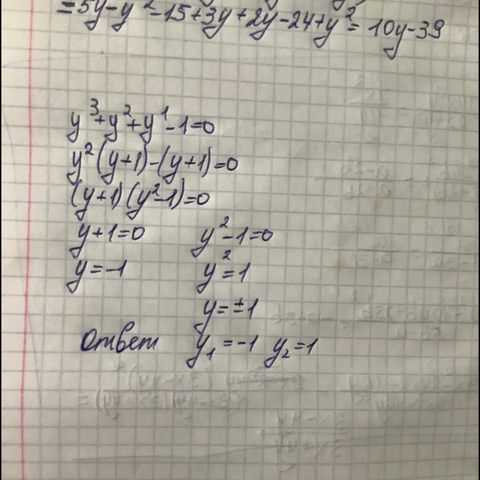 =5y-y²-15+3y+2y-24+y²=10y-39
y³+y²+y¹-1=0
y²(y+1)-(y+1)=0
(y+1)(y²-1)=0
y+1=0 y²-1=0
y=-1 y²=1
y=±1
Ответ y₁=-1 y₂=1